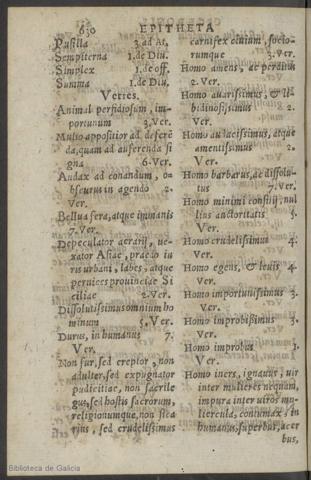 630 EPITHETA
Pusilla 3. ad At.
Sempiterna 1. de Diu.
Simplex 1. de off.
Summa 1. de Diu.
Verres.
Animal perfidiosum, im-
portunum 3. Ver.
Multo appositior ad deferẽ
da, quam ad auferenda si
gna 6. Ver.
Audax ad conandum, o-
bscurus in agendo 2.
Ver.
Bellua fera, atque immanis
7. Ver.
Depeculator aerarij, ue-
xator Asiae, praedo iu
ris urbani, labes, atque
pernicies prouinciae Si
ciliae 2. Ver.
Dissolutissimus omnium ho
minum 5. Ver.
Durus, in humanus 7.
Ver.
Non fur, sed ereptor, non
adulter, sed expugnator
pudicitiae, non sacrile
gus, sed hostis sacrorum,
religionumque, non sica
rius, sed crudelissimus
carnifex ciuium, socio-
rumque 3. Ver.
Homo amens, ac perditus
2. Ver.
Homo auarissimus, & li
bidinosissimus 2.
Ver.
Homo audacissimus, atque
amentissimus 2.
Ver.
Homo barbarus, ac dissolu-
tus 7. Ver.
Homo minimi consilij, nul
lius auctoritatis 5.
Ver.
Homo crudelissimus 4.
Ver.
Homo egens, & leuis 4.
Ver.
Homo importunissimus 3.
Ver.
Homo improbissimus 3.
Ver.
Homo improbus 1.
Ver.
Homo iners, ignauus, uir
inter mulieres nequam,
impura inter uiros mu-
liercula, contumax, in
humanus, superbus, acer
bus,
Biblioteca de Galicia